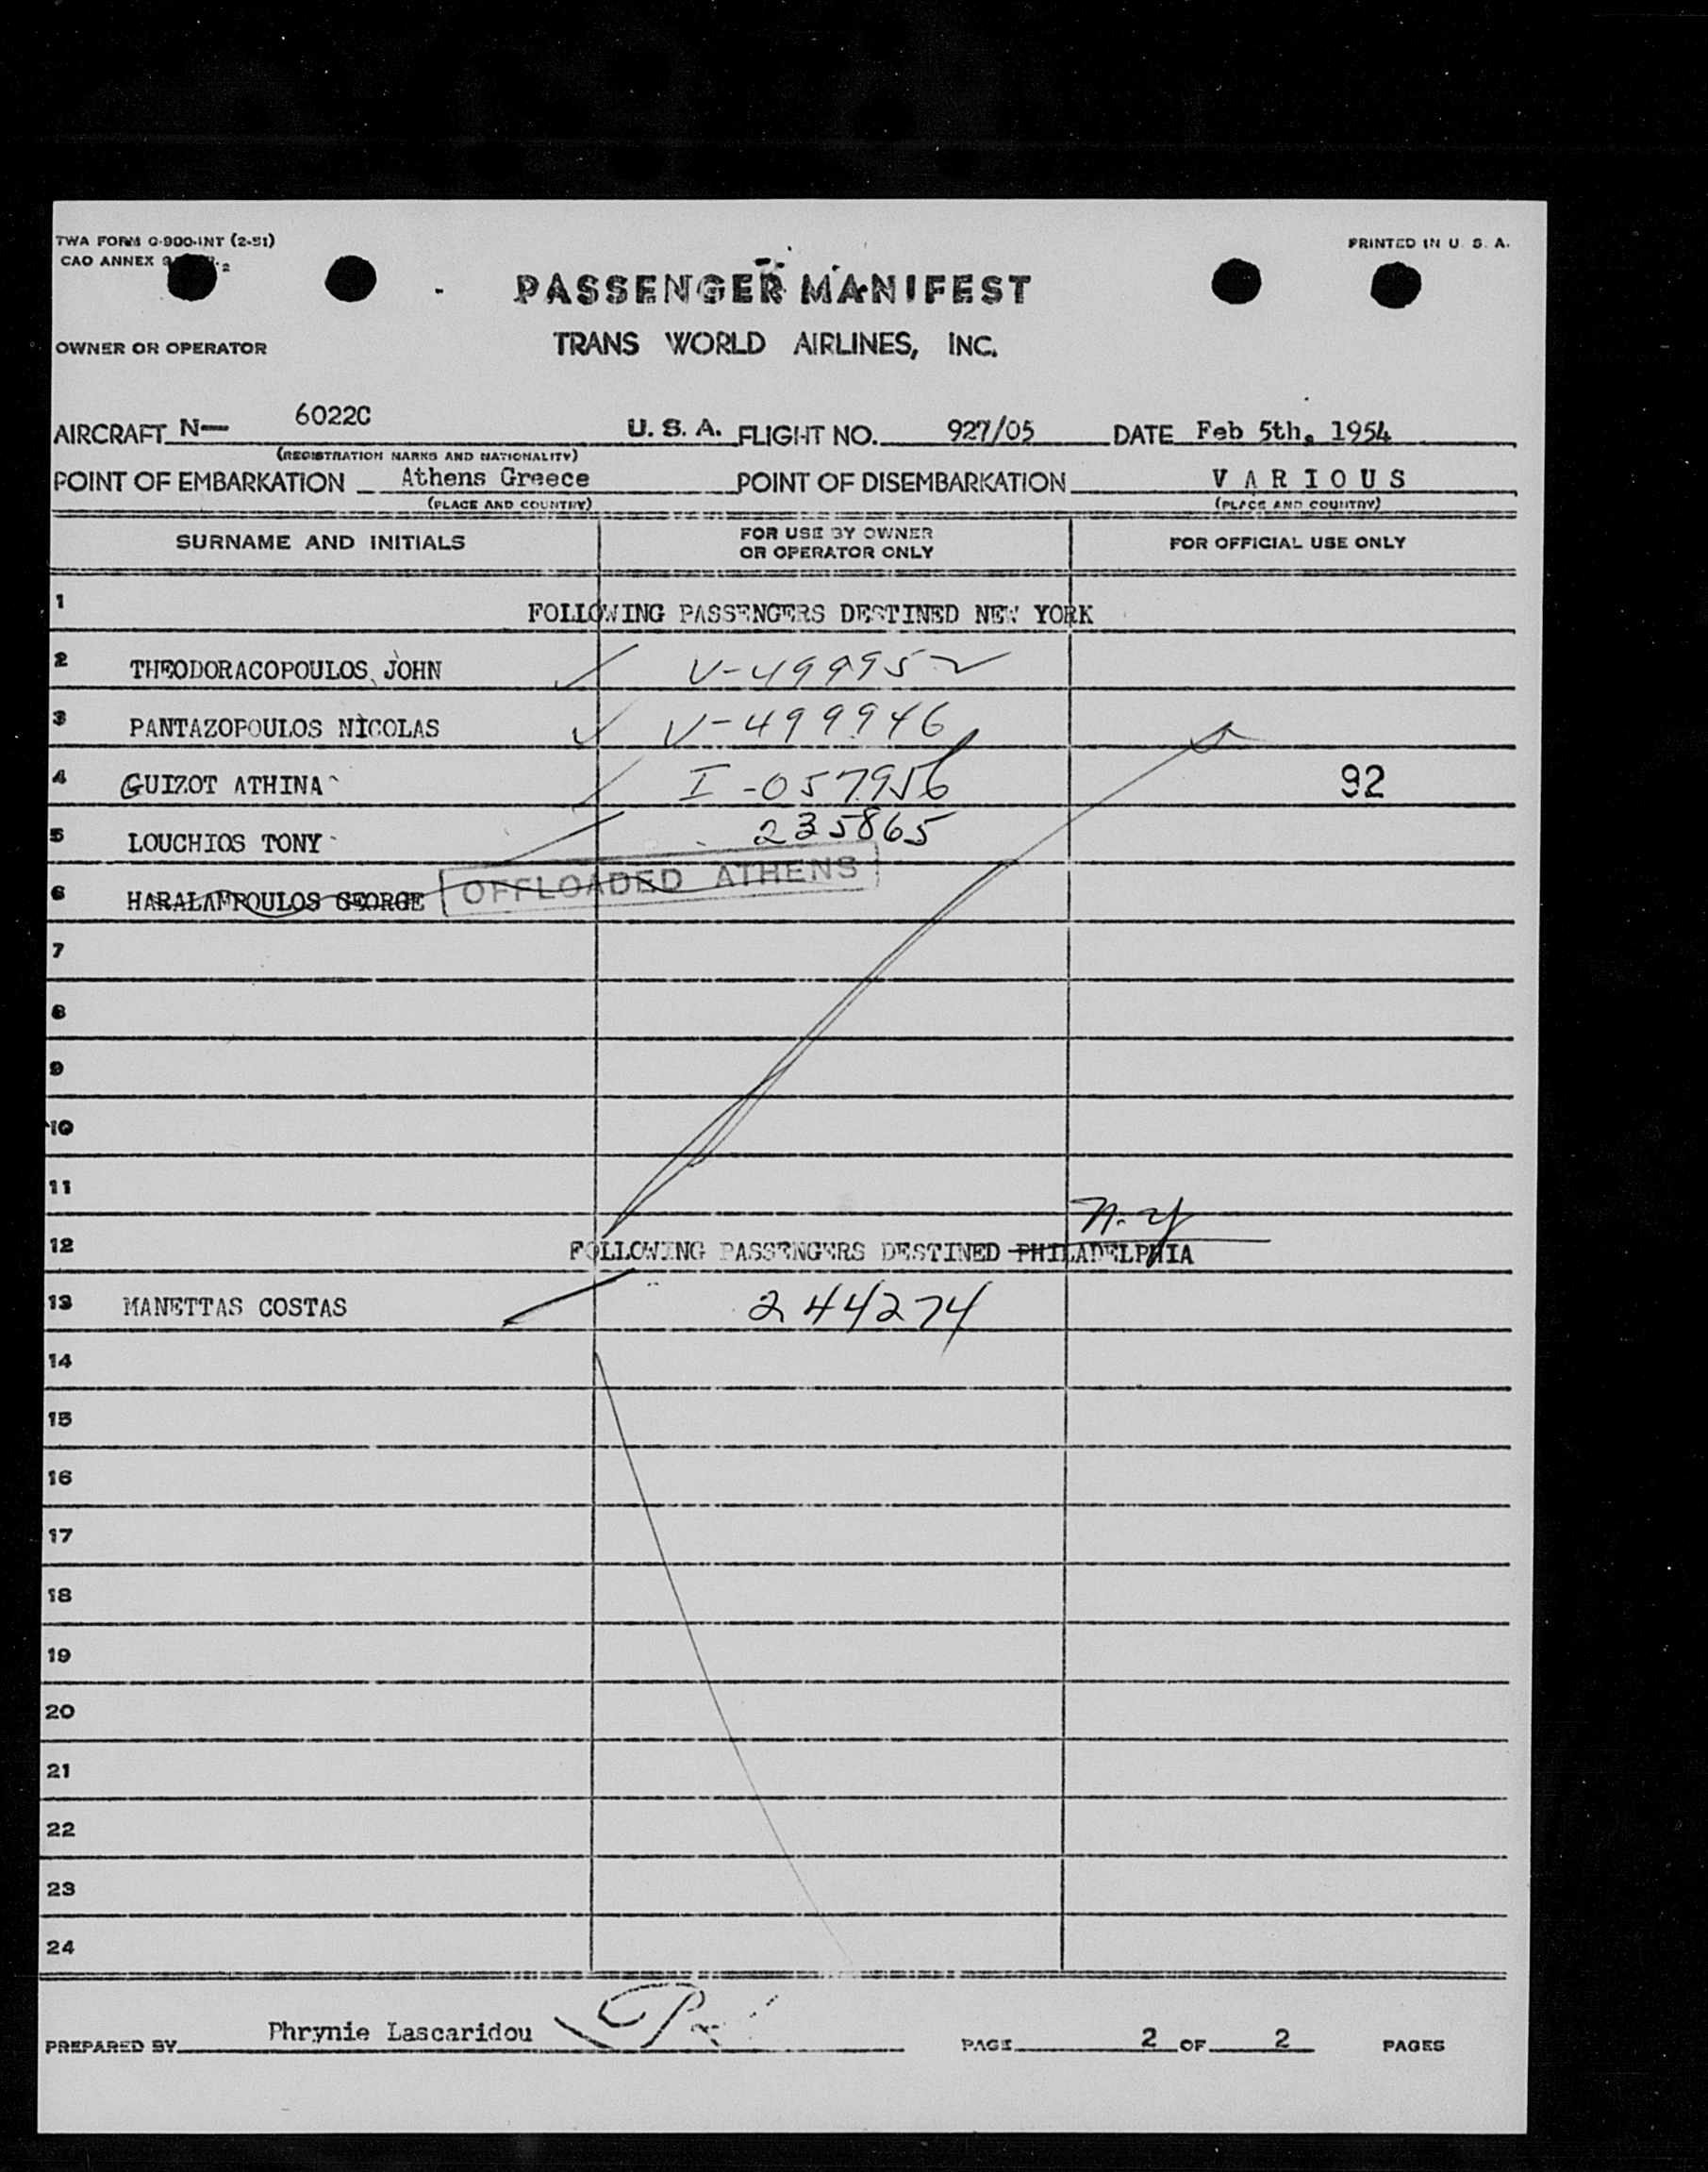 TWA FORM G-900-INT (2-51)
PRINTED IN U. S. A.
CAO ANNEX
PASSENGER MANIFEST
OWNER OR OPERATOR
TRANS WORLD AIRLINES, INC.
AIRCRAFT N— 6022C U. S. A. FLIGHT NO. 927/05 DATE Feb 5th, 1954
(REGISTRATION MARKS AND NATIONALITY)
POINT OF EMBARKATION Athens Greece POINT OF DISEMBARKATION V A R I O U S
(PLACE AND COUNTRY) (PLACE AND COUNTRY)
SURNAME AND INITIALS FOR USE BY OWNER OR OPERATOR ONLY FOR OFFICIAL USE ONLY
1 FOLLOWING PASSENGERS DESTINED NEW YORK
2 THEODORACOPOULOS JOHN V-499952
3 PANTAZOPOULOS NICOLAS V-499946
4 GUIZOT ATHINA I-057956 92
5 LOUCHIOS TONY 235865
6 HARALAMPOULOS GEORGE OFFLOADED ATHENS
7
8
9
10
11
N.Y
12 FOLLOWING PASSENGERS DESTINED PHILADELPHIA
13 MANETTAS COSTAS 244274
14
15
16
17
18
19
20
21
22
23
24
PREPARED BY Phrynie Lascaridou PAGE 2 OF 2 PAGES